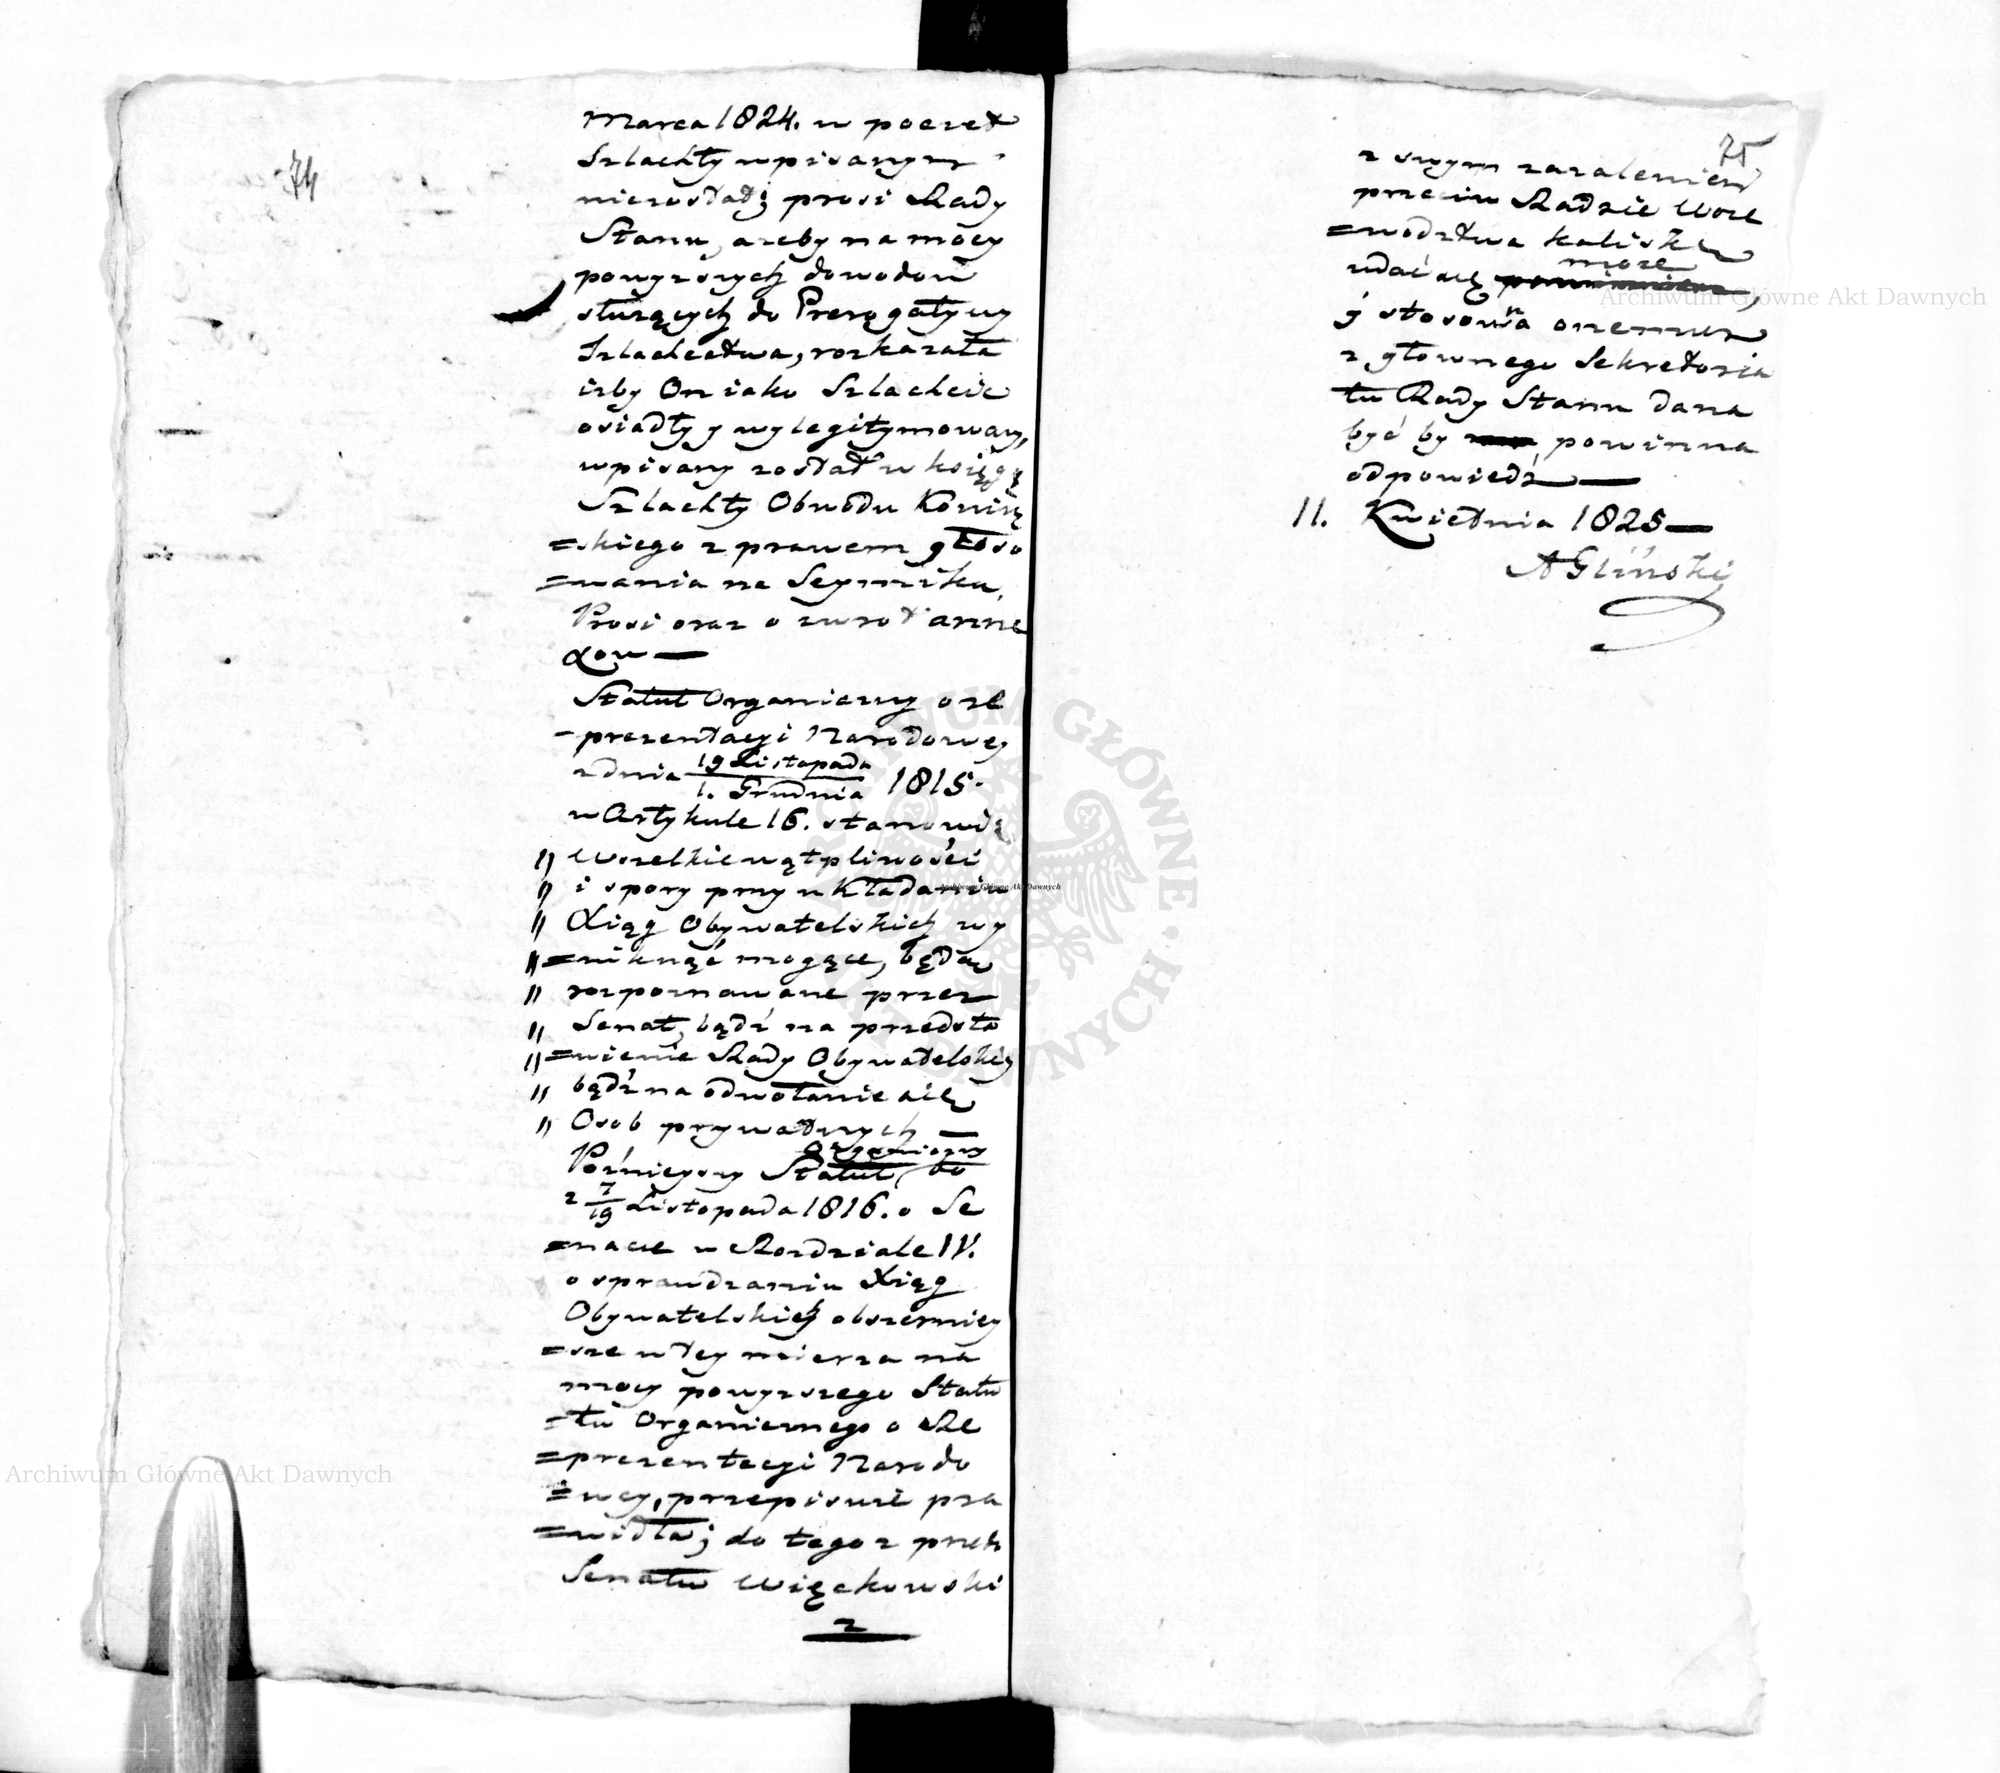 74
Marca 1824. w poczet
Szlachty wpisanym
niezostał; prosi Rady
Stanu, ażeby na mocy
powyższych dowodow
służących do Prerogatywy
Szlachectwa, rozkazała
iżby On iako Szlachcic
osiadły y wylegitymowany,
wpisany został w księgę
Szlachty Obwodu Koniń
=skiego z prawem głoso
=wania na Seymiku.
Prosi oraz o zwrot anne
xow —
Statut Organiczny o re
-prezentacyi Narodowey
z dnia 19 Listopada / 1. Grudnia 1815.
w Artykule 16. stanowi
" Wszelkie wątpliwości
" i spory przy układaniu
" Xiąg Obywatelskich wy
" =niknąć mogące, będą
" rozpoznawane przez
" Senat, bądź na przedsta
" =wienie Rady Obywatelskiey
" bądź na odwołanie się
" Osob prywatnych —
Organiczny
Poźnieyszy Statut, bo
z 7/19 Listopada 1816. o Se
=nacie w Rozdziale IV.
o sprawdzaniu Xiąg
Obywatelskich obszerniey
=sze w tey mierze na
mocy powyższego Statu
=tu Organicznego o Re
=prezentacyi Narodo
=wey, przepisuie pra
=widła; do tego z pręto
Senatu Więckowski
z
75
z swym zażaleniem
przeciw Radzie Woie
=wodztwa Kaliskie
może
udać się
y stosowna onemuż
z głownego Sekretaria
tu Rady Stanu dana
być by powinna
odpowiedź —
11. Kwietnia 1825 —
A Gliński
Archiwum Główne Akt Dawnych
Archiwum Główne Akt Dawnych
Archiwum Główne Akt Dawnych
ARCHIWUM GŁÓWNE AKT DAWNYCH